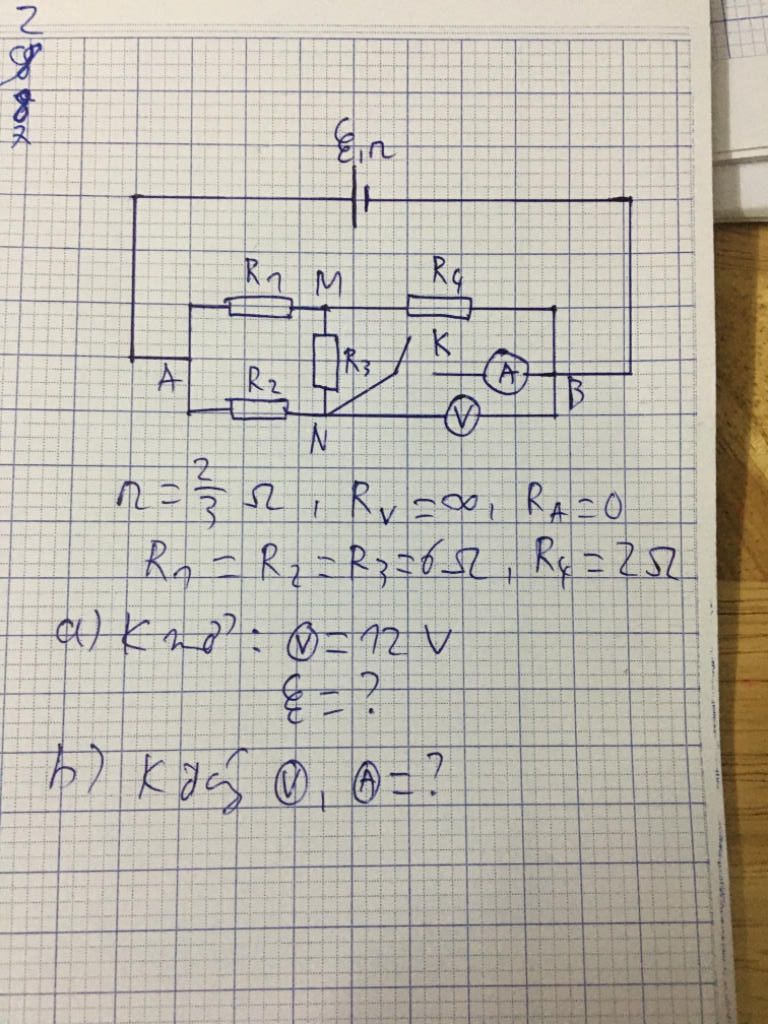 ξ, r
R1 M R4
R3 K A
A R2 B
N V
r = 2/3 Ω, R_V = ∞, R_A = 0
R1 = R2 = R3 = 6Ω, R4 = 2Ω
a) K mở: Ⓥ = 12 V
ξ = ?
b) K đóng Ⓥ, Ⓐ = ?